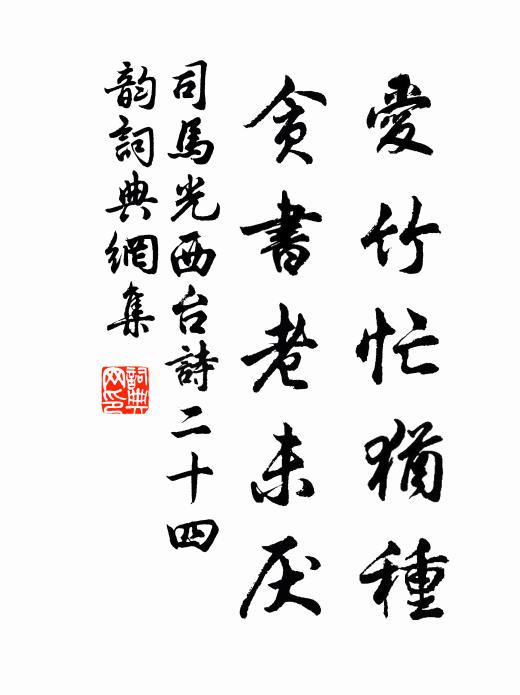 愛竹忙猶種
貪書老未厌
司馬光西台詩二十四
韵詞典網集
詞典
网印